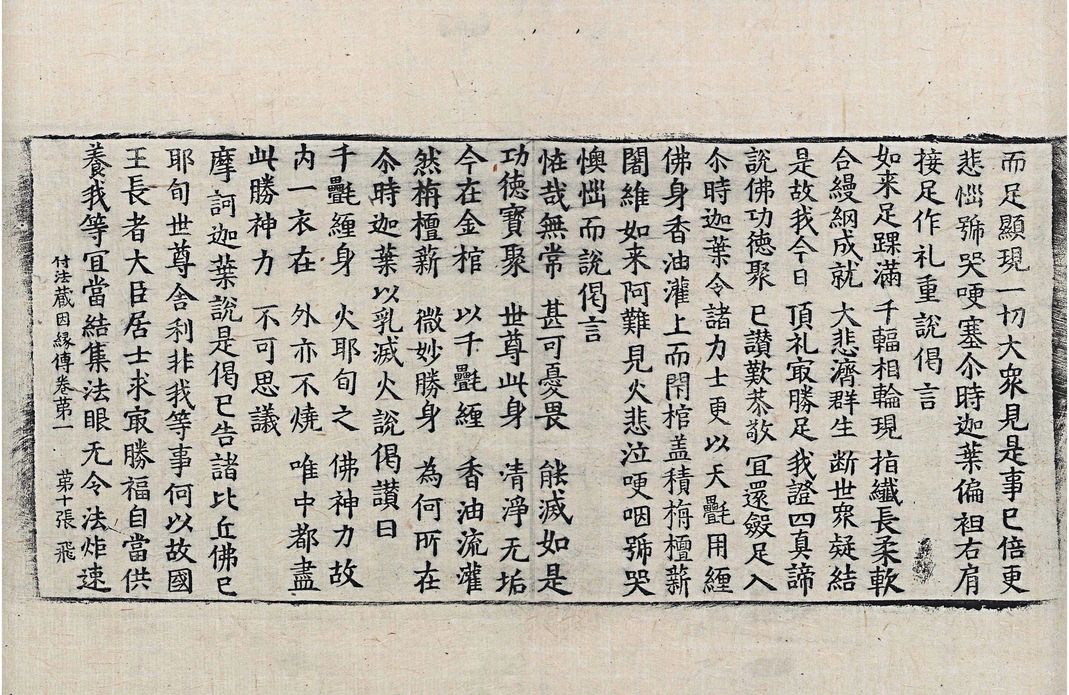 而足顯現一切大衆見是事已倍更
悲惱號哭哽塞尒時迦葉偏袒右肩
接足作礼重說偈言
如来足踝滿 千輻相輪現 指纖長柔軟
合縵網成就 大悲濟群生 断世衆疑結
是故我今日 頂礼㝡勝足 我證四真諦
說佛功徳聚 已讃歎恭敬 冝還斂足入
尒時迦葉令諸力士更以天㲲用纏
佛身香油灌上而閇棺盖積栴檀薪
闍維如来阿難見火悲泣哽咽號哭
懊惱而說偈言
恠哉無常 甚可憂畏 能滅如是
功徳寳聚 世尊此身 清淨无垢
今在金棺 以千㲲纏 香油流灌
然栴檀薪 微妙勝身 為何所在
尒時迦葉以乳滅火說偈讃曰
千㲲纏身 火耶旬之 佛神力故
内一衣在 外亦不燒 唯中都盡
此勝神力 不可思議
摩訶迦葉說是偈已告諸比丘佛已
耶旬世尊舎利非我等事何以故國
王長者大臣居士求㝡勝福自當供
養我等冝當結集法眼无令法炬速
付法蔵因縁傳卷苐一 苐十張 飛